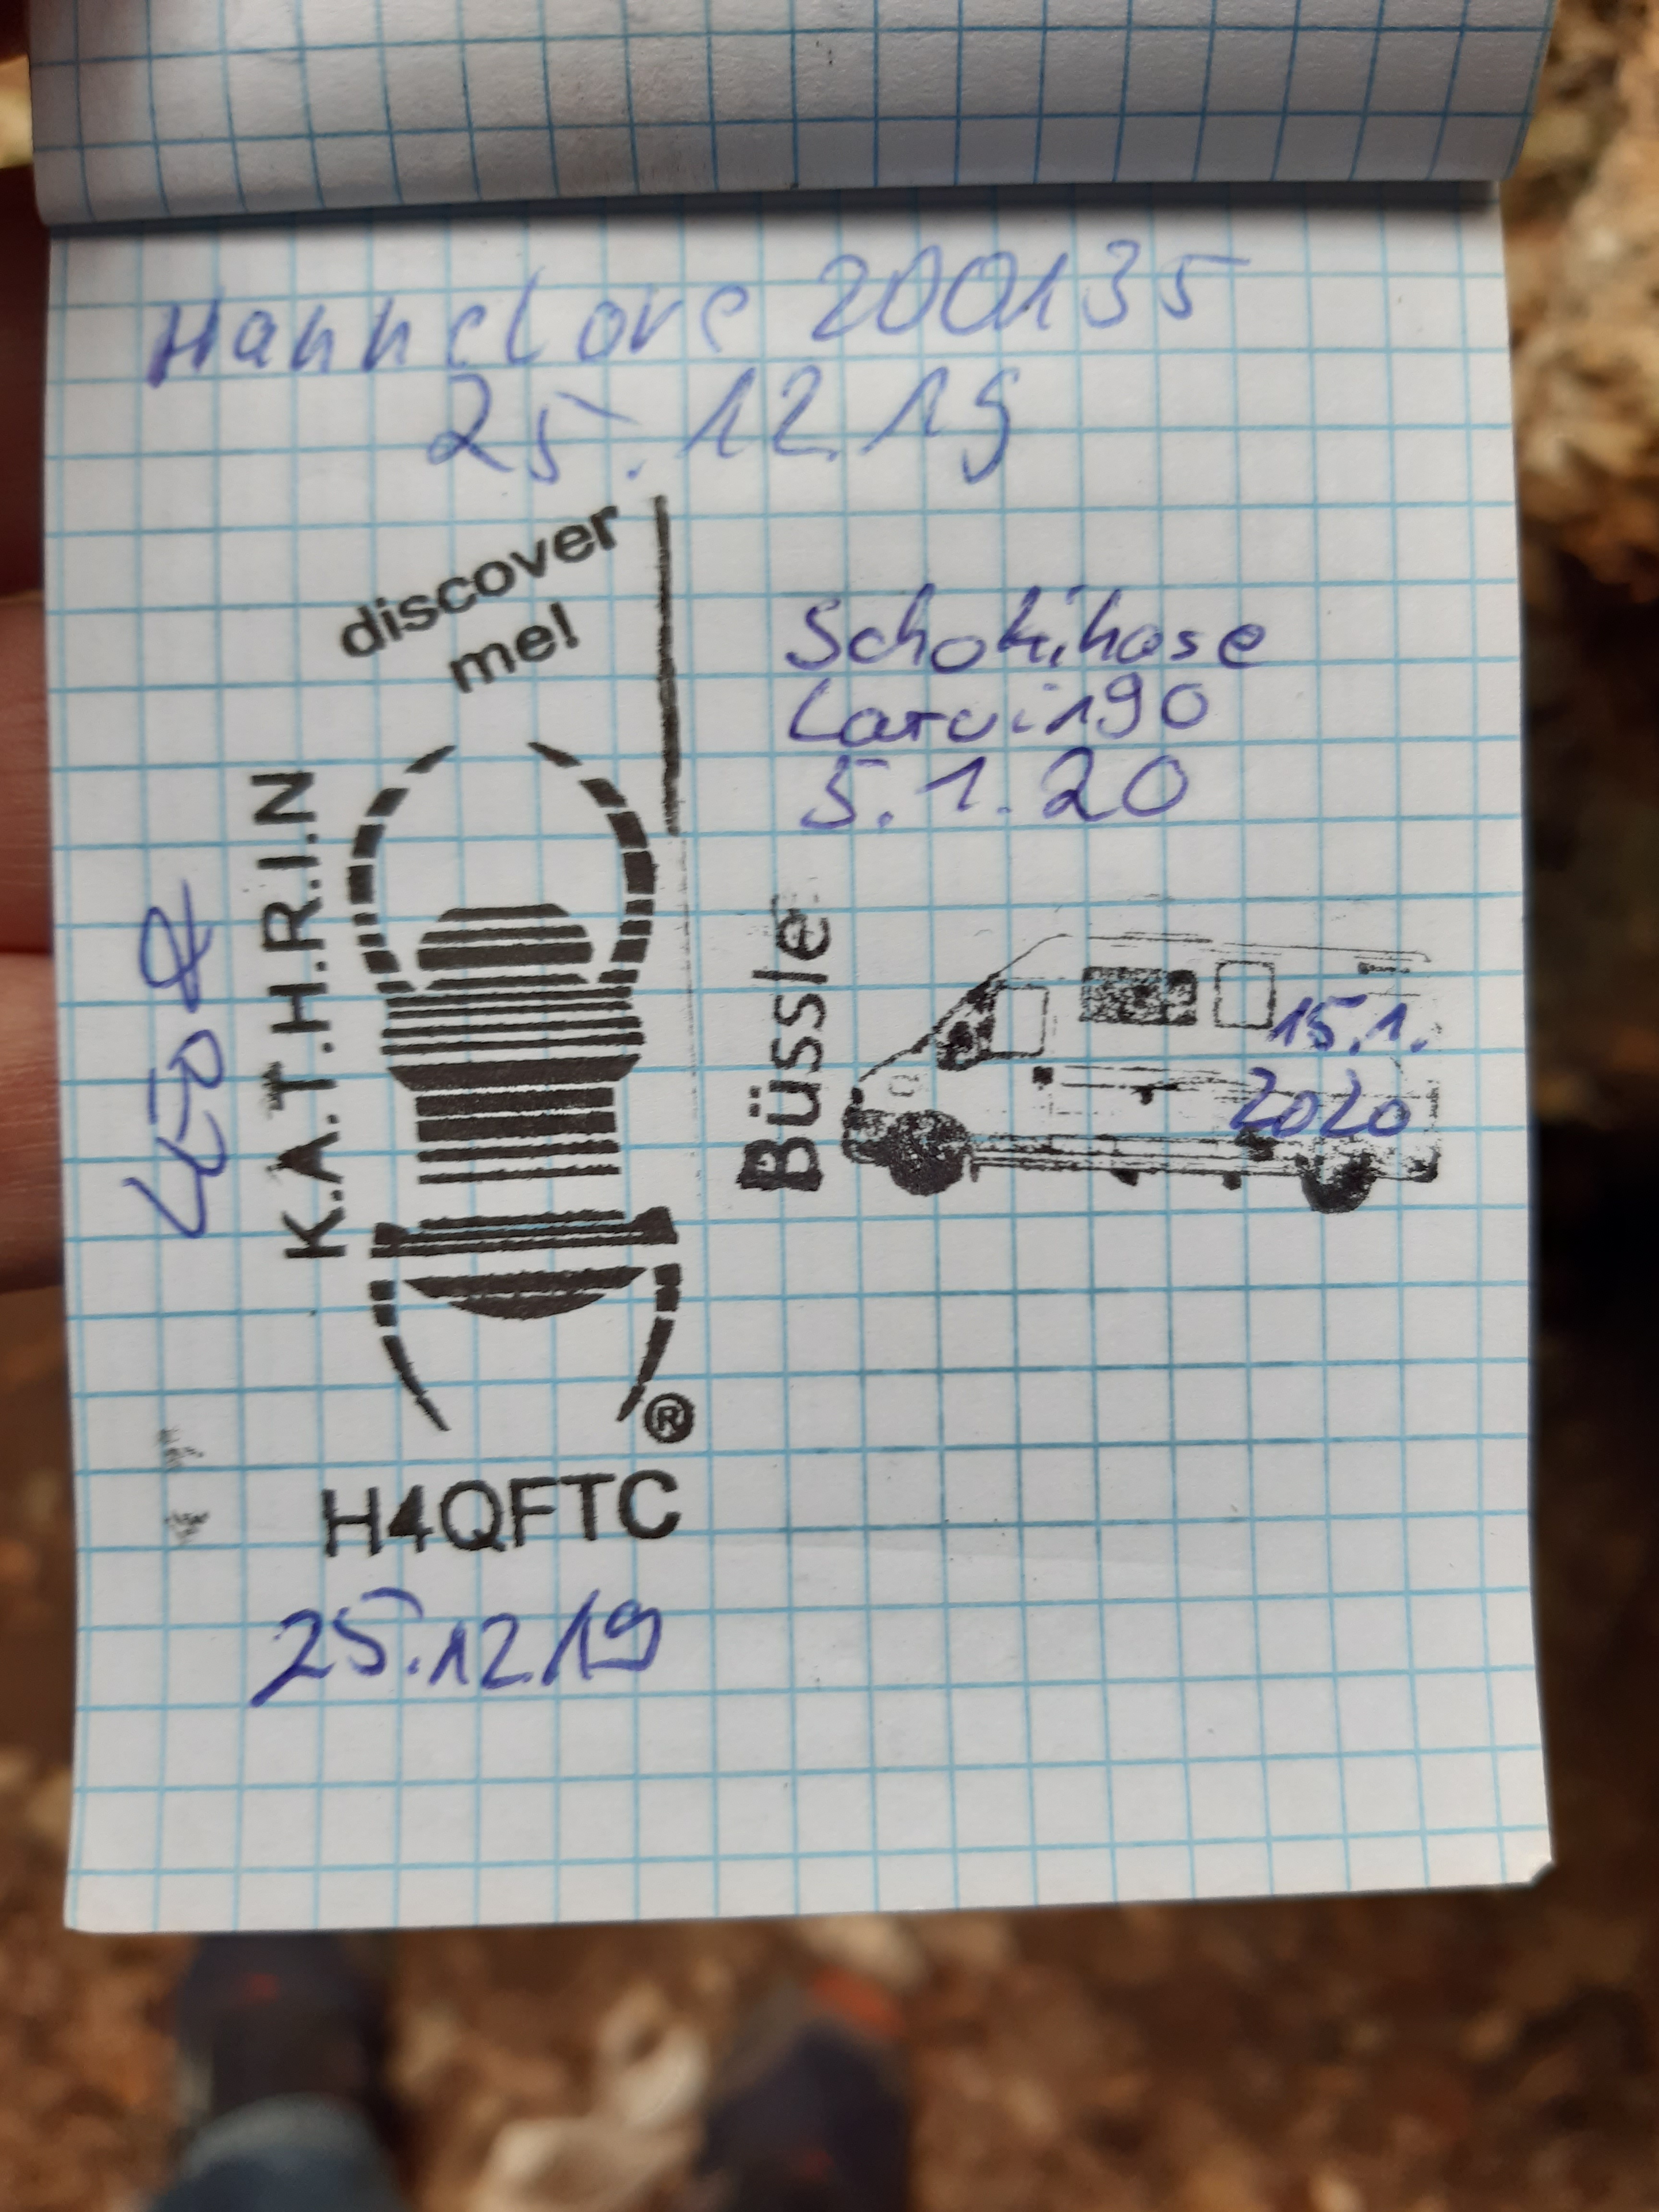 Hannelore 200135
25.12.19
discover
me!
K.A.T.H.R.I.N
®
H4QFTC
25.12.19
Schokihase
Larvi190
5.1.20
Büssle
15.1.
2020